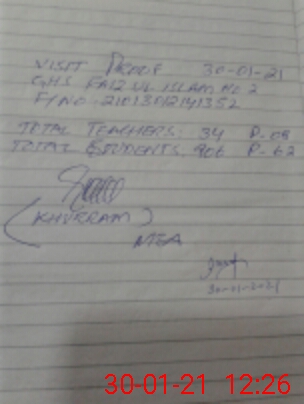 VISIT PROOF 30-01-21
GHS FAIZ UL ISLAM NO 2
TOTAL TEACHERS: 34 P-08
TOTAL STUDENTS. 906 P-62
(KHURRAM)
MEA
30-01-2021
30-01-21 12:26